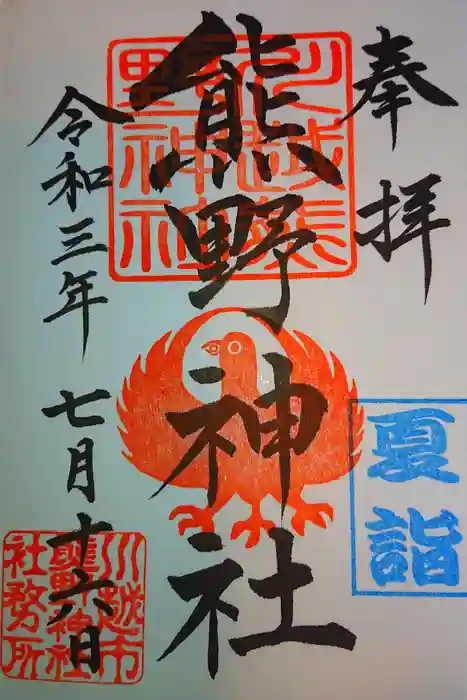 奉拝
川越熊野神社
熊野神社
夏詣
令和三年七月十六日
川越市
熊野神社
社務所